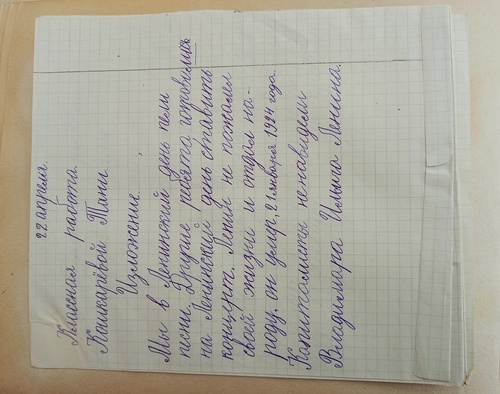 22 апреля.
Классная работа.
Кошкарёвой Тани
Изложение.
Мы в Ленинский день пели
песни. Другие ребята готовились
на Ленинский день ставить
концерт. Ленин не пожалел
своей жизни и отдал на-
роду. он умер, 21 января 1924 года.
Капиталисты ненавидели
Владимира Ильича Ленина.